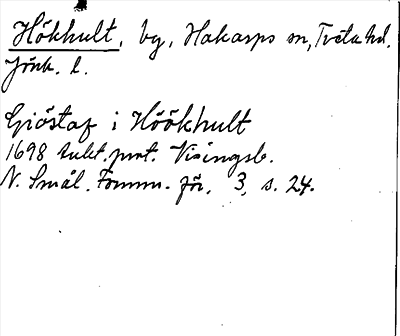 Hökhult, by, Hakarps sn, Tveta hd.
Jönk. l.
Giöstaf i Höökhult
1698 tukt. prot. Visingsb.
N. Smål. Fornm. för. 3, s. 24.